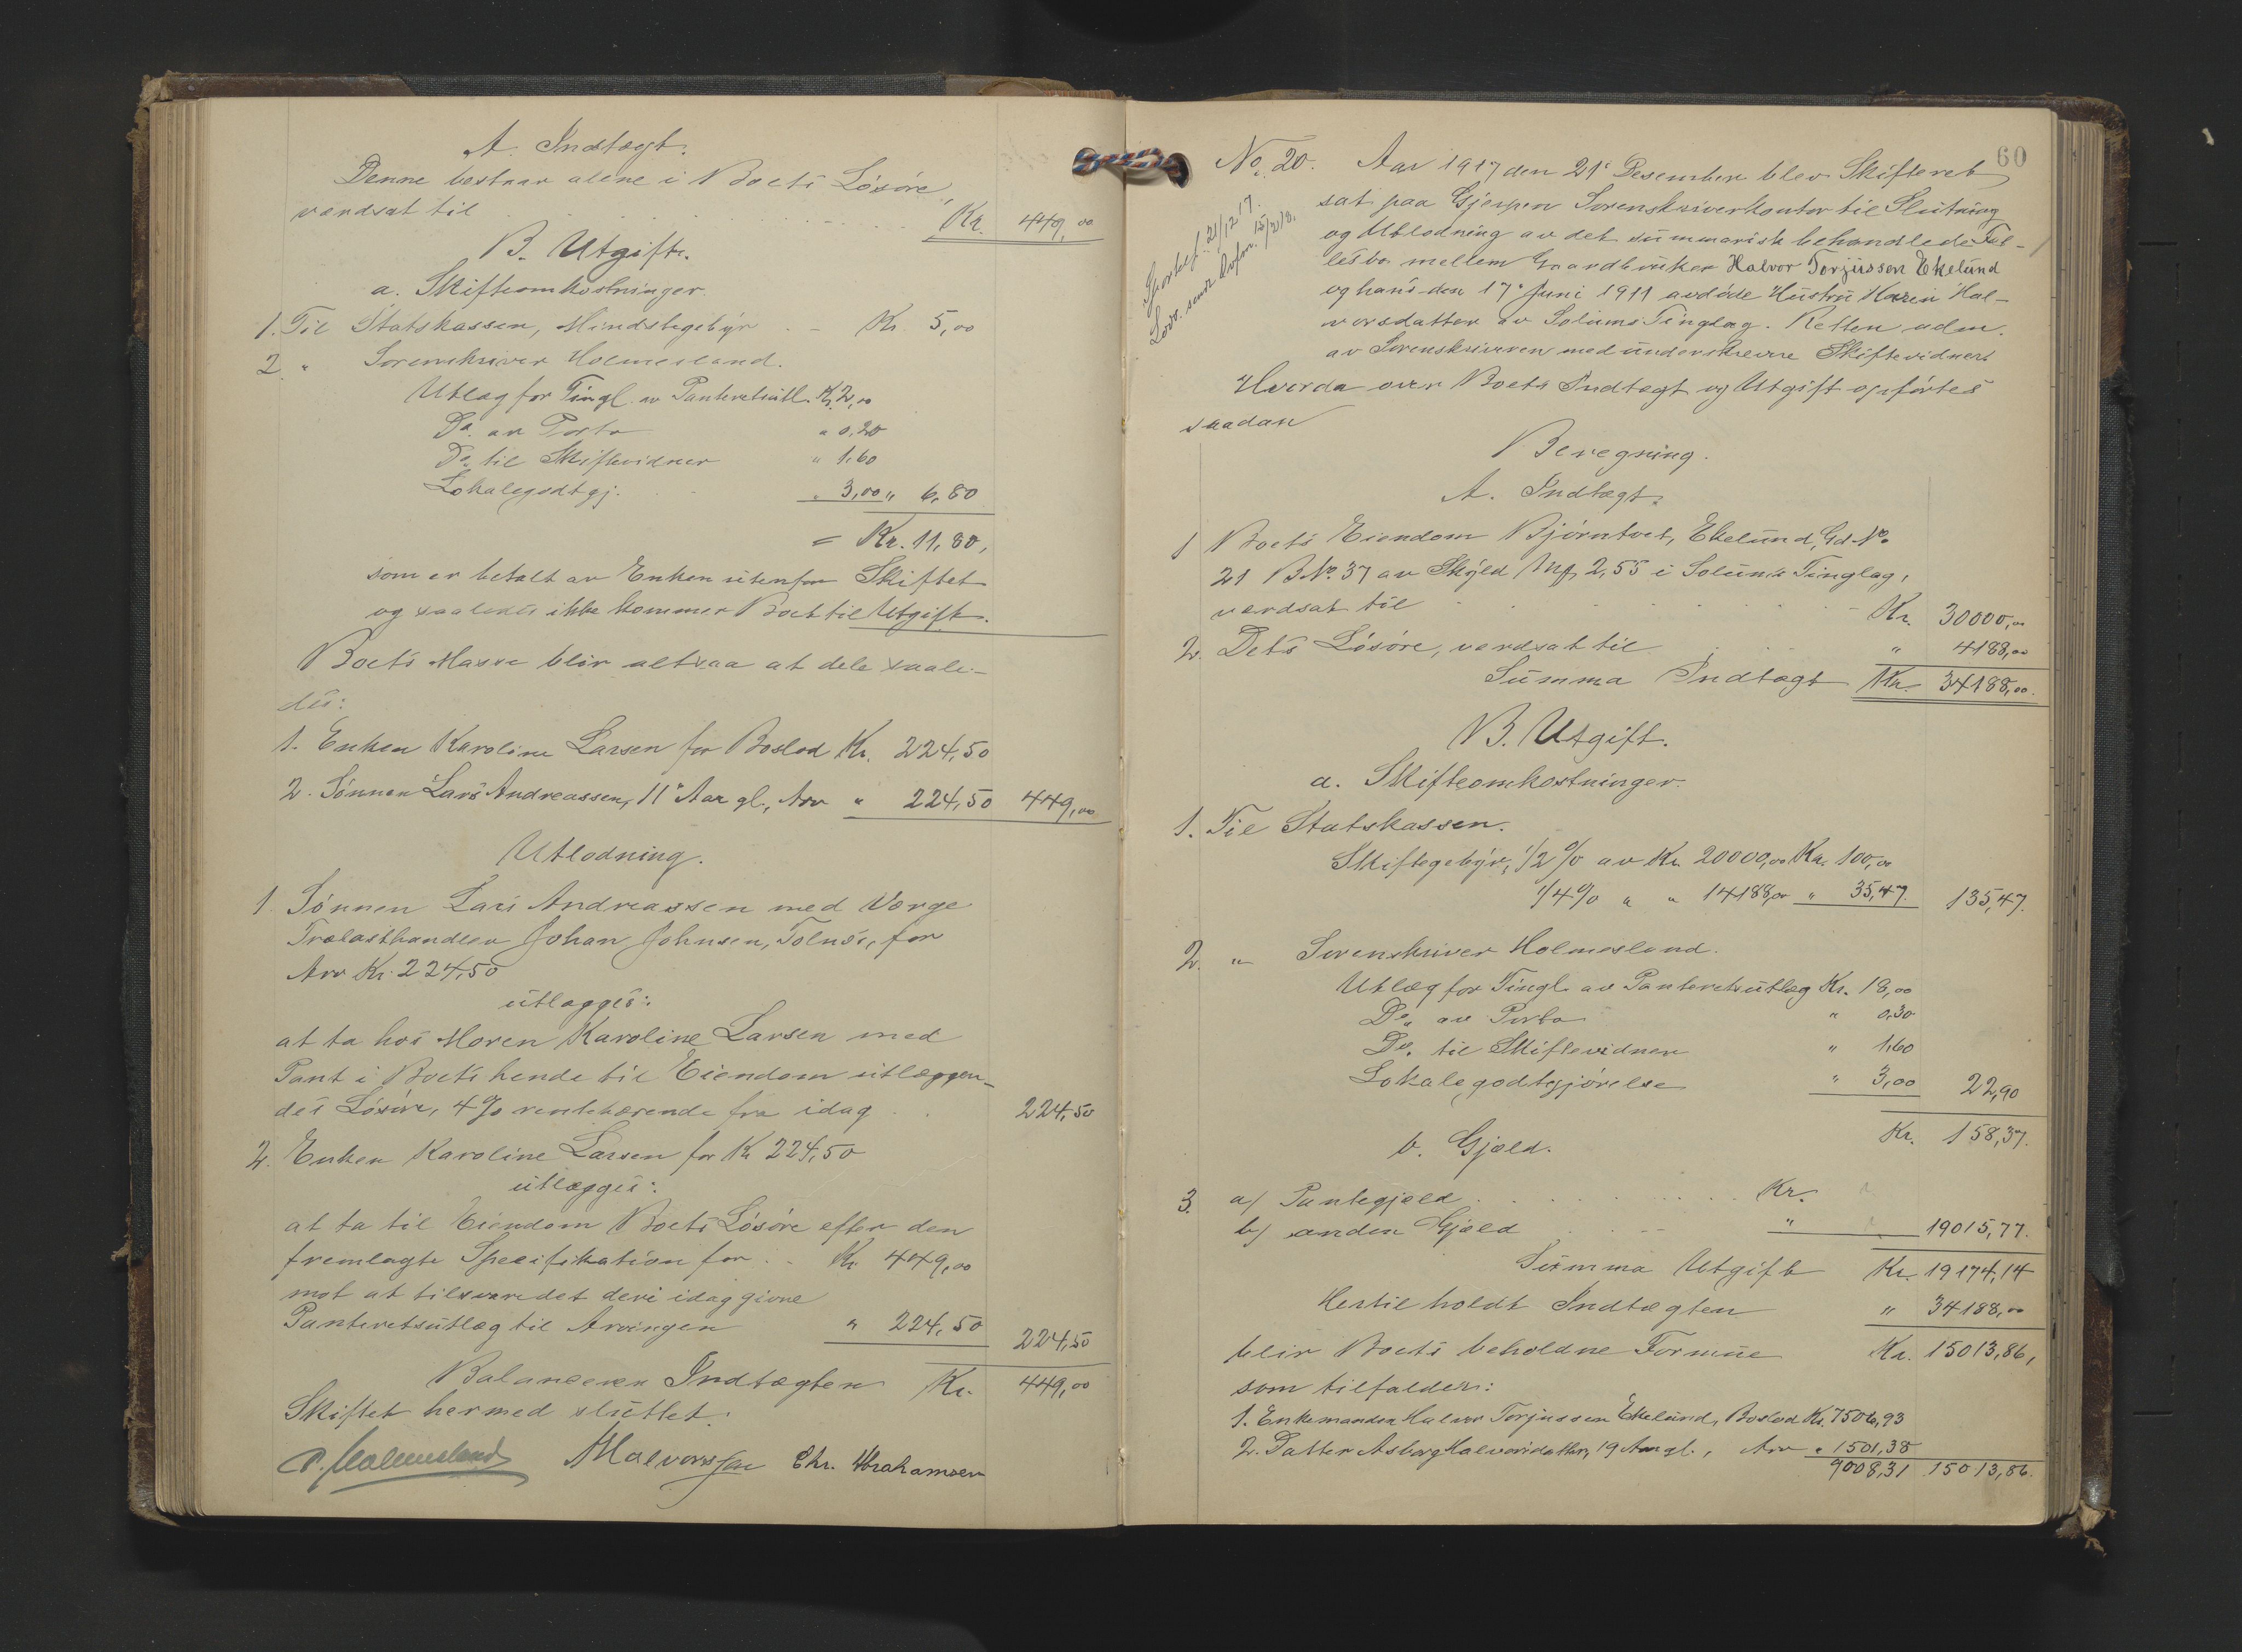 A. Indtægt.
Denne bestaar alene i Boets Løsøre,
værdsat til . . . . . . . . . . Kr. 449,00
B. Utgift.
a. Skifteomkostninger.
1. Til Statskassen, Mindstegebyr . – Kr. 5,00
2. " Sorenskriver Holmesland.
Utlæg for Tingl. av Panteretsutl. Kr. 2,00
Do. av Porto " 0,20
Do. til Skiftevidner " 1,60
Lokalegodtgj. " 3,00 " 6,80
= Kr. 11,80,
som er betalt av Enken utenfor Skiftet
og saaledes ikke kommer Boet til Utgift.
Boets Masse blir altsaa at dele saale-
des:
1. Enken Karoline Larsen for Boslod Kr. 224,50
2. Sønnen Lars Andreassen, 11 Aar gl., Arv " 224,50 449,00
Utlodning.
1. Sønnen Lars Andreassen med Værge
Trælasthandler Johan Johnsen, Tolnes, for
Arv Kr. 224,50
utlægges:
at ta hos Moren Karoline Larsen med
Pant i Boets hende til Eiendom utlæggen-
des Løsøre, 4% rentebærende fra idag . . 224,50
2. Enken Karoline Larsen for Kr 224,50
utlægges:
at ta til Eiendom Boets Løsøre efter den
fremlagte Specifikation for . . Kr. 449,00
mot at tilsvare det deri idag givne
Panteretsutlæg til Arvingen " 224,50 224,50
Balancerer Indtægten Kr. 449,00
Skiftet hermed sluttet.
P. Holmesland Halvorsen Chr. Abrahamsen
60
No. 20. Aar 1917 den 21. Desember blev Skifteret
sat paa Gjerpen Sorenskriverkontor til Slutning
og Utlodning av det summarisk behandlede Fæl-
lesbo mellem Gaardbruker Halvor Torjussen Ekelund
og hans den 17. Juni 1911 avdøde Hustru Maren Hal-
vorsdatter av Solums Tinglag. Retten adm.
av Sorenskriveren med underskrevne Skiftevidner.
Hvorda over Boets Indtægt og Utgift opførtes
saadan
21/12 17.
15/2 18.
Beregning.
A. Indtægt.
1 Boets Eiendom Bjørntvet, Ekelund, Gd. No.
21 B.No. 37 av Skyld Mrk. 2,55 i Solums Tinglag,
værdsat til . . . . . . Kr. 30000,00
2. Dets Løsøre, værdsat til . . " 4188,00
Summa Indtægt Kr. 34188,00.
B. Utgift.
a. Skifteomkostninger.
1. Til Statskassen.
Skiftegebyr, 1/2 % av Kr. 20000,00 Kr. 100,00
1/4 % " " 14188,00 " 35,47. 135,47.
2. " Sorenskriver Holmesland.
Utlæg for Tingl. av Panteretsutlæg Kr. 18,00
Do. av Porto " 0,30
Do. til Skiftevidner " 1,60
Lokalegodtgjørelse " 3,00 22,90
Kr. 158,37.
b. Gjæld.
3. a) Pantegjæld . . . . . . . . Kr.
b) anden Gjæld . . – " 19015,77.
Summa Utgift Kr. 19174,14
Hertil holdt Indtægten " 34188,00
blir Boets beholdne Formue Kr. 15013,86,
som tilfalder:
1. Enkemanden Halvor Torjussen Ekelund, Boslod Kr. 7506,93
2. Datter Asborg Halvorsdatter, 19 Aar gl., Arv " 1501,38
9008,31 15013,86.